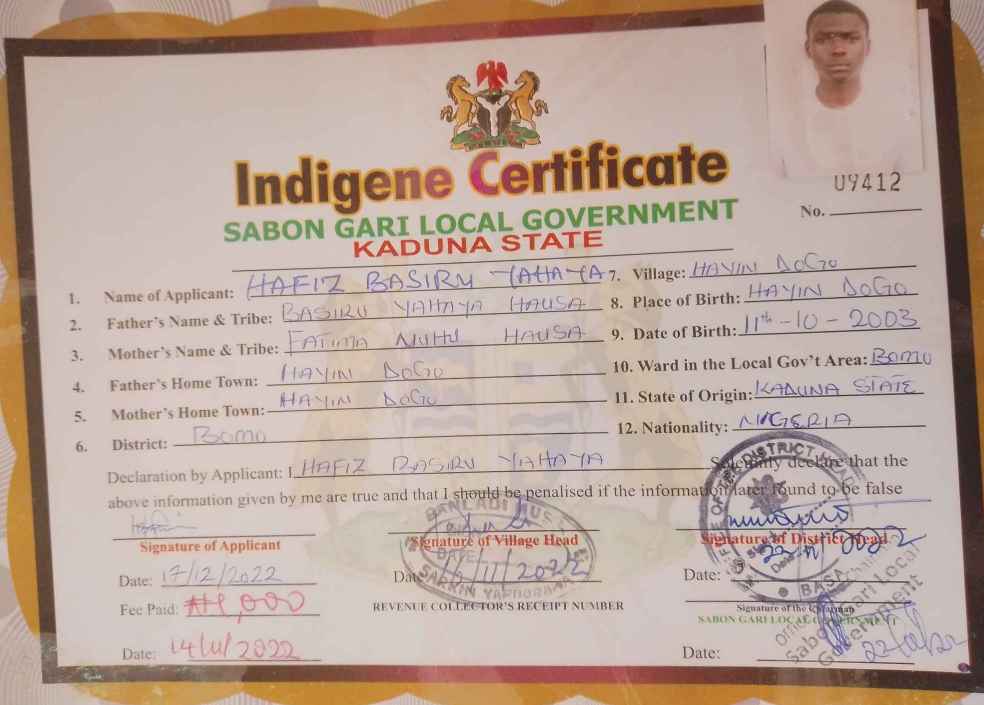 Indigene Certificate
SABON GARI LOCAL GOVERNMENT
KADUNA STATE
U9412
No.
1. Name of Applicant: HAFIZ BASIRU YAHAYA
2. Father's Name & Tribe: BASIRU YAHAYA HAUSA
3. Mother's Name & Tribe: FATIMA NUHU HAUSA
4. Father's Home Town: HAYIN DOGO
5. Mother's Home Town: HAYIN DOGO
6. District: BOMO
7. Village: HAYIN DOGO
8. Place of Birth: HAYIN DOGO
9. Date of Birth: 11th - 10 - 2003
10. Ward in the Local Gov't Area: BOMO
11. State of Origin: KADUNA STATE
12. Nationality: NIGERIA
Declaration by Applicant: I HAFIZ BASIRU YAHAYA Solemnly declare that the
above information given by me are true and that I should be penalised if the information later found to be false
Signature of Applicant
Date: 17/12/2022
Fee Paid: ₦1,000
Date: 14/11/2022
Signature of Village Head
Date 16/11/2022
SARKIN
REVENUE COLLECTOR'S RECEIPT NUMBER
Signature of District Head
Date: 22/11/2022
OFFICE OF THE DISTRICT HEAD
BASAWA
Signature of the Chairman
SABON GARI LOCAL GOVERNMENT
Sabon Gari Local
Government
Date: